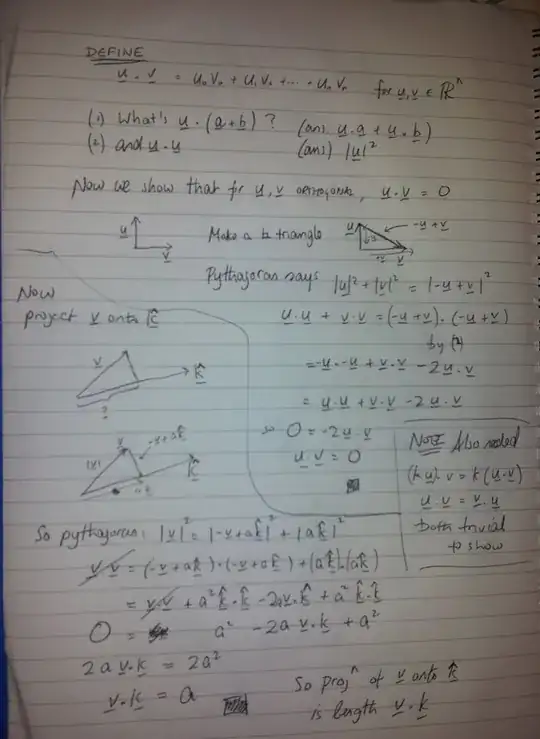 DEFINE
u · v = u₀v₀ + u₁v₁ + ... + uₙvₙ for u, v ∈ ℝⁿ
(1) What's u · (a + b) ? (ans) u · a + u · b)
(2) and u · u (ans) |u|²
Now we show that for u, v orthogonal, u · v = 0
u v
Make a triangle
u -u v -u + v
Pythagoran says |u|² + |v|² = |-u + v|²
u · u + v · v = (-u + v) · (-u + v)
by (2)
= -u · -u + v · v - 2u · v
= u · u + v · v - 2u · v
so 0 = -2u · v
u · v = 0
NOTE Also needed
(k u) · v = k (u · v)
u · v = v · u
both trivial
to show
Now
project v onto k̂
v k̂
?
v -v + ak̂
|v| k̂
So pythagoran: |v|² = |-v + ak̂|² + |ak̂|²
v · v = (-v + ak̂) · (-v + ak̂) + (ak̂) · (ak̂)
= v · v + a² k̂ · k̂ - 2av · k̂ + a² k̂ · k̂
0 = a² - 2a v · k + a²
2a v · k = 2a²
v · k = a
So projⁿ of v onto k̂
is length v · k